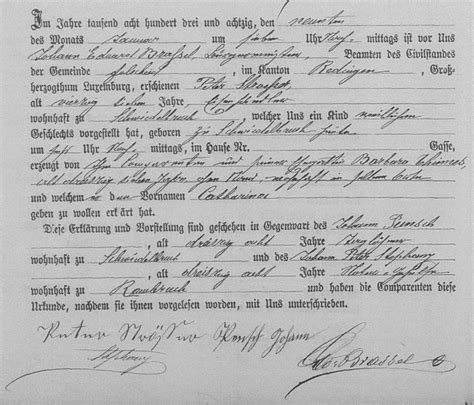 Im Jahre tausend acht hundert drei und achtzig, den neunten
des Monats Januar um sieben Uhr Nach mittags ist vor Uns
Johann Eduard Brassel, Bürgermeister, Beamten des Civilstandes
der Gemeinde im Kanton Redingen, Groß-
herzogthum Luxemburg, erschienen Peter
alt vierzig sieben Jahre,
wohnhaft zu Schwiedelbruch, welcher Uns ein Kind weiblichen
Geschlechts vorgestellt hat, geboren zu Schwiedelbruch heute
um Uhr mittags, im Hause Nr. Gasse,
erzeugt von ihm Comparenten und seiner Barbara
alt dreißig sieben Jahre, ohne Stand, wohnhaft in
und welchem er den Vornamen Catharina
geben zu wollen erklärt hat.
Diese Erklärung und Vorstellung sind geschehen in Gegenwart des Johann Pensch
, alt dreißig acht Jahre
wohnhaft zu Schwiedelbruch und des Johann Peter Stephany
, alt dreißig acht Jahre
wohnhaft zu Rambruch und haben die Comparenten diese
Urkunde, nachdem sie ihnen vorgelesen worden, mit Uns unterschrieben.
Peter Ströszer Pensch Johann
Stephany Ed. Brassel